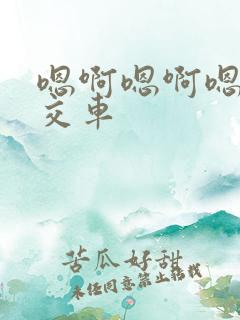 嗯啊嗯啊嗯
交车
苦瓜好甜
未经同意禁止转载